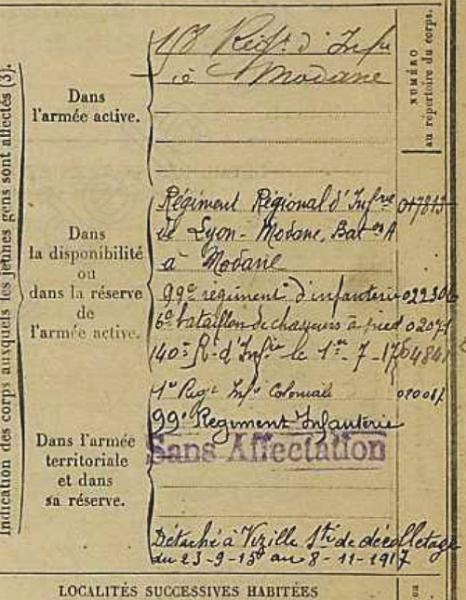 Indication des corps auxquels les jeunes gens sont affectés (3).
NUMÉRO
au répertoire du corps.
Dans
l'armée active.
158 Régt d'Infie
à Modane
Dans
la disponibilité
ou
dans la réserve
de
l'armée active.
Régiment Régional d'Infrie 017813
de Lyon-Modane, Baton A
à Modane
99e régiment d'infanterie 02230
6e bataillon de chasseurs à pied 02071
140e R. d'Infie le 1er-7-17
1er Regt Infie Coloniale
Dans l'armée
territoriale
et dans
sa réserve.
99e Regiment Infanterie
Sans Affectation
Détaché à Vizille Sté de décolletage
du 23-9-15 au 8-11-1917
LOCALITÉS SUCCESSIVES HABITÉES